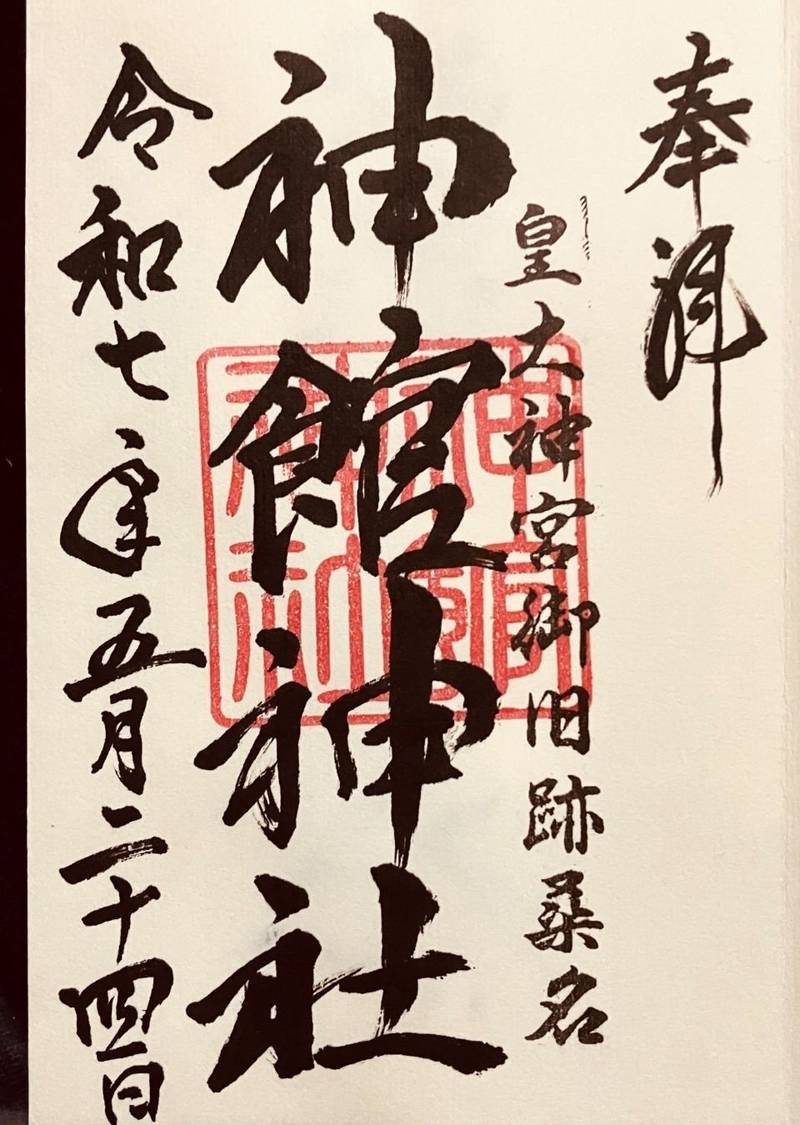 奉拝
皇大神宮御旧跡桑名
神館神社
令和七年五月二十四日